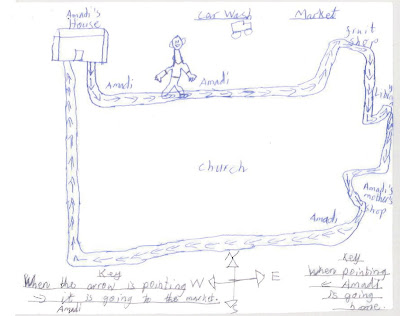 Amadi's
House
Car Wash
Market
fruit
shop
Amadi
Amadi
church
Amadi's
mother's
shop
Amadi
Key
When the arrow is pointing
→ it is going to the market.
Amadi
W
E
S
Key
When pointing
← Amadi
is going
home.